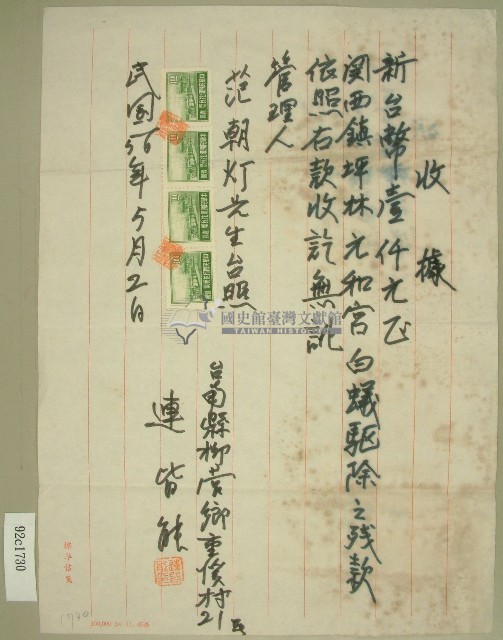 收據
新台幣壹仟元正
関西鎮坪林元和宮白蟻駆除之残款
依照右款收訖無訛
管理人
范朝灯先生台照
台南縣柳营鄉重溪村21
連皆能
民國56年5月2日
國史館臺灣文獻館
TAIWAN HISTORICA
92c1730